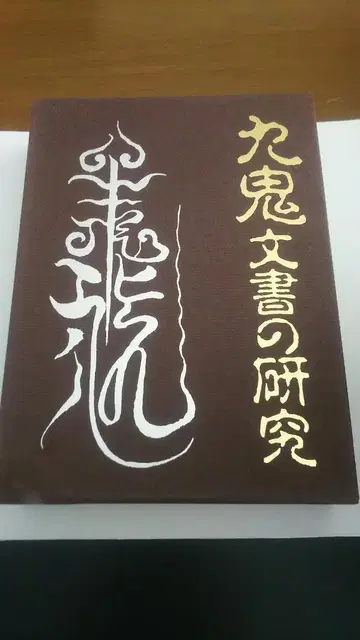 九鬼文書の研究